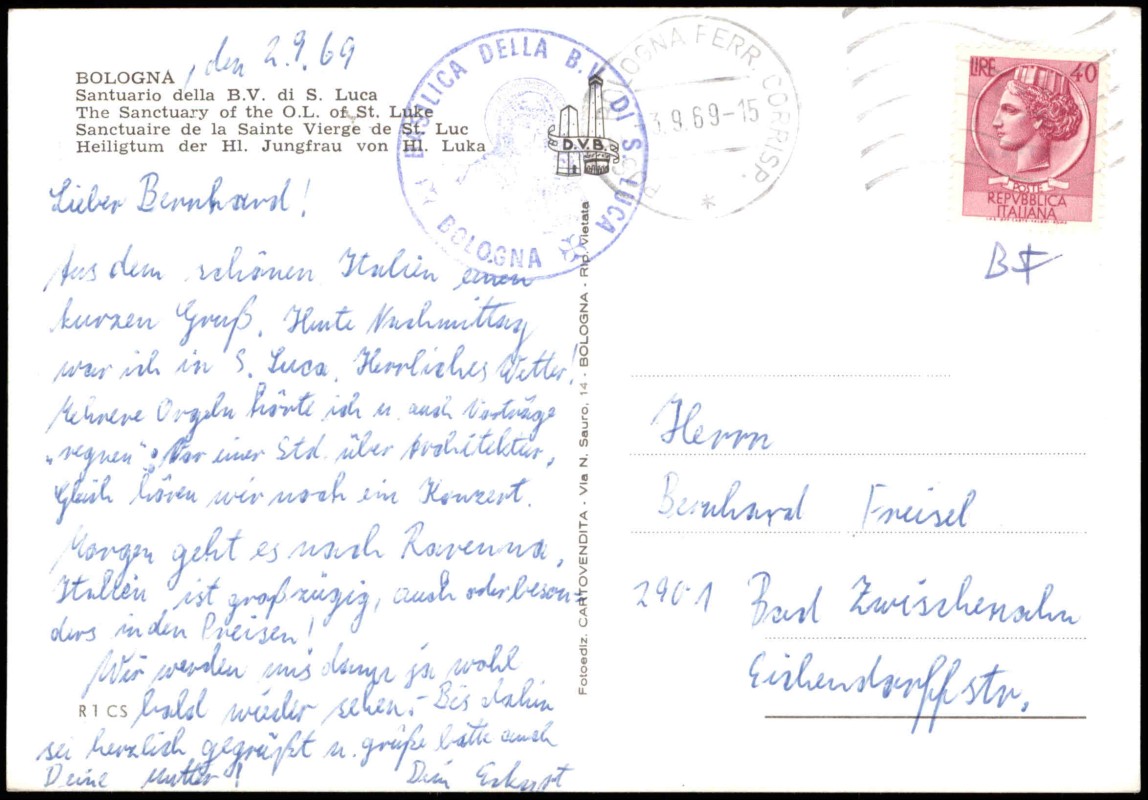 BOLOGNA, den 2.9.69
Santuario della B.V. di S. Luca
The Sanctuary of the O.L. of St. Luke
Sanctuaire de la Sainte Vierge de St. Luc
Heiligtum der Hl. Jungfrau von Hl. Luka
BASILICA DELLA B.V. DI S. LUCA
BOLOGNA
D.V.B.
BOLOGNA FERR. CORRISP.
3.9.69-15
LIRE 40
POSTE
REPVBBLICA
ITALIANA
Lieber Bernhard!
Aus dem schönen Italien einen
kurzen Gruß. Heute Nachmittag
war ich in S. Luca. Herrliches Wetter!
Mehrere Orgeln hörte ich u. auch Vorträge
„regnen“. Vor einer Std. über Architektur,
Gleich hören wir noch ein Konzert.
Morgen geht es nach Ravenna.
Italien ist großzügig, auch oder beson-
ders in den Preisen!
Wir werden uns dann ja wohl
bald wieder sehen. Bis dahin
sei herzlich gegrüßt u. grüße bitte auch
Deine Mutter! Dein
R 1 CS
Fotoediz. CARTOVENDITA - Via N. Sauro, 14 - BOLOGNA - Rip. Vietata
Herrn
Bernhard Freisel
2901 Bad Zwischenahn
Eichendorffstr.